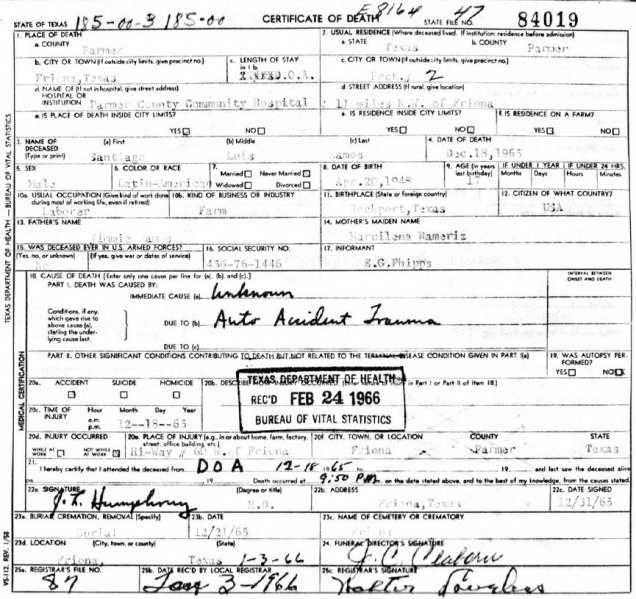 185-00-3 185-00 E8164 47
STATE OF TEXAS CERTIFICATE OF DEATH STATE FILE NO. 84019
1. PLACE OF DEATH 2. USUAL RESIDENCE (Where deceased lived. If institution: residence before admission)
a. COUNTY Parmer a. STATE Texas b. COUNTY Parmer
b. CITY OR TOWN (If outside city limits, give precinct no.) Friona, Texas c. LENGTH OF STAY in 1 b. D.O.A. c. CITY OR TOWN (If outside city limits, give precinct no.) Prct. 2
d. NAME OF (If not in hospital, give street address) HOSPITAL OR INSTITUTION Parmer County Community Hospital d. STREET ADDRESS (If rural, give location) 11 miles N.W. of Friona
e. IS PLACE OF DEATH INSIDE CITY LIMITS? e. IS RESIDENCE INSIDE CITY LIMITS? f. IS RESIDENCE ON A FARM?
YES NO YES NO YES NO
3. NAME OF DECEASED (Type or print) (a) First Santiago (b) Middle Luis (c) Last Ramos 4. DATE OF DEATH Dec.18,1965
5. SEX Male 6. COLOR OR RACE Latin-American 7. Married Never Married Widowed Divorced 8. DATE OF BIRTH Apr.20,1948 9. AGE (In years last birthday) 17 IF UNDER 1 YEAR Months Days IF UNDER 24 HRS. Hours Min.
10a. USUAL OCCUPATION (Give kind of work done during most of working life, even if retired) Laborer 10b. KIND OF BUSINESS OR INDUSTRY Farm 11. BIRTHPLACE (State or foreign country) Rockport, Texas 12. CITIZEN OF WHAT COUNTRY? USA
13. FATHER'S NAME Jimmie 14. MOTHER'S MAIDEN NAME Marcilena Rameriz
15. WAS DECEASED EVER IN U.S. ARMED FORCES? (Yes, no, or unknown) (If yes, give war or dates of service) 16. SOCIAL SECURITY NO. 456-76-1446 17. INFORMANT E.G.Phipps
18. CAUSE OF DEATH [Enter only one cause per line for (a), (b), and (c).] INTERVAL BETWEEN ONSET AND DEATH
PART I. DEATH WAS CAUSED BY:
IMMEDIATE CAUSE (a) Unknown
Conditions, if any, which gave rise to above cause (a), stating the underlying cause last. DUE TO (b) Auto Accident Trauma
DUE TO (c)
PART II. OTHER SIGNIFICANT CONDITIONS CONTRIBUTING TO DEATH BUT NOT RELATED TO THE TERMINAL DISEASE CONDITION GIVEN IN PART I(a) 19. WAS AUTOPSY PERFORMED? YES NO X
20a. ACCIDENT SUICIDE HOMICIDE 20b. DESCRIBE HOW INJURY OCCURRED in Part I or Part II of Item 18.)
TEXAS DEPARTMENT OF HEALTH
REC'D FEB 24 1966
BUREAU OF VITAL STATISTICS
20c. TIME OF INJURY Hour Month Day Year a.m. p.m. 12--18--65
20d. INJURY OCCURRED WHILE AT WORK NOT WHILE AT WORK X 20e. PLACE OF INJURY (e.g., in or about home, farm, factory, street, office building, etc.) Hi-Way # 60 W.of Friona 20f. CITY, TOWN, OR LOCATION Friona COUNTY Parmer STATE Texas
21. I hereby certify that I attended the deceased from DOA 12-18 1965 to 19 and last saw the deceased alive
on 19 Death occurred at 9:50 P.m. on the date stated above, and to the best of my knowledge, from the causes stated.
22a. SIGNATURE (Degree or title) M.D. 22b. ADDRESS Friona, Texas 22c. DATE SIGNED 12/31/65
23a. BURIAL, CREMATION, REMOVAL (Specify) Burial 23b. DATE 12/21/65 23c. NAME OF CEMETERY OR CREMATORY
23d. LOCATION (City, town, or county) (State) Friona, Texas 1-3-66 24. FUNERAL DIRECTOR'S SIGNATURE
25a. REGISTRAR'S FILE NO. 87 25b. DATE REC'D BY LOCAL REGISTRAR Jan 3-1966 25c. REGISTRAR'S SIGNATURE
TEXAS DEPARTMENT OF HEALTH — BUREAU OF VITAL STATISTICS
MEDICAL CERTIFICATION
VS-112, REV. 1/58